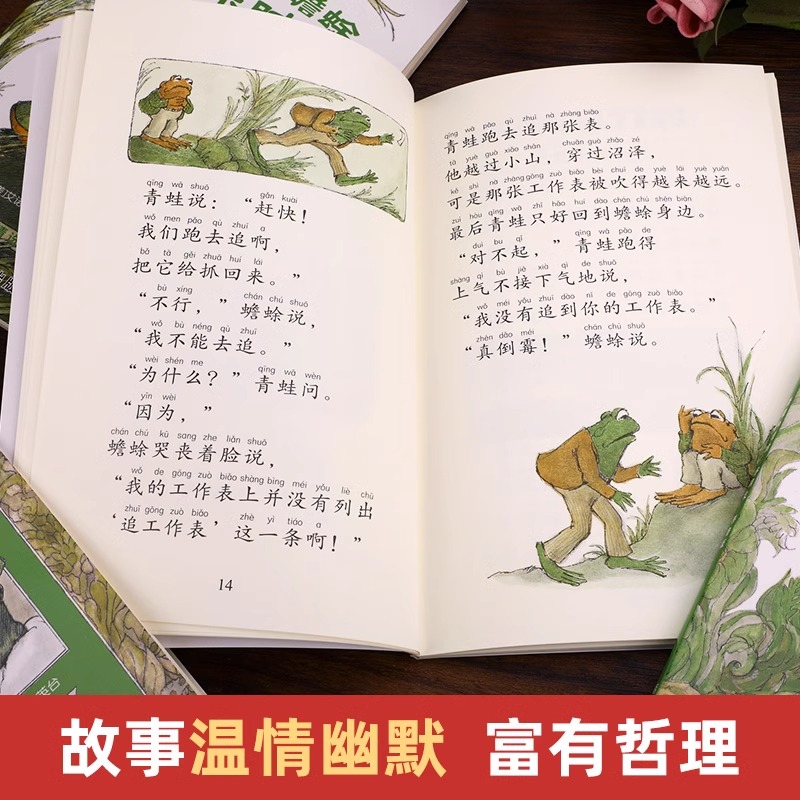 qīng wā shuō gǎn kuài
青蛙说：“赶快！
wǒ men pǎo qù zhuī a
我们跑去追啊，
bǎ tā gěi zhuā huí lái
把它给抓回来。”
bù xíng chán chú shuō
“不行，”蟾蜍说，
wǒ bù néng qù zhuī
“我不能去追。”
wèi shén me qīng wā wèn
“为什么？”青蛙问。
yīn wèi
“因为，”
chán chú kū sang zhe liǎn shuō
蟾蜍哭丧着脸说，
wǒ de gōng zuò biǎo shàng bìng méi yǒu liè chū
“我的工作表上并没有列出
zhuī gōng zuò biǎo zhè yì tiáo a
‘追工作表’这一条啊！”
14
qīng wā pǎo qù zhuī nà zhāng biǎo
青蛙跑去追那张表。
tā yuè guò xiǎo shān chuān guò zhǎo zé
他越过小山，穿过沼泽，
kě shì nà zhāng gōng zuò biǎo bèi chuī de yuè lái yuè yuǎn
可是那张工作表被吹得越来越远。
zuì hòu qīng wā zhǐ hǎo huí dào chán chú shēn biān
最后青蛙只好回到蟾蜍身边。
duì bu qǐ qīng wā pǎo de
“对不起，”青蛙跑得
shàng qì bù jiē xià qì de shuō
上气不接下气地说，
wǒ méi yǒu zhuī dào nǐ de gōng zuò biǎo
“我没有追到你的工作表。”
zhēn dǎo méi chán chú shuō
“真倒霉！”蟾蜍说。
故事温情幽默 富有哲理